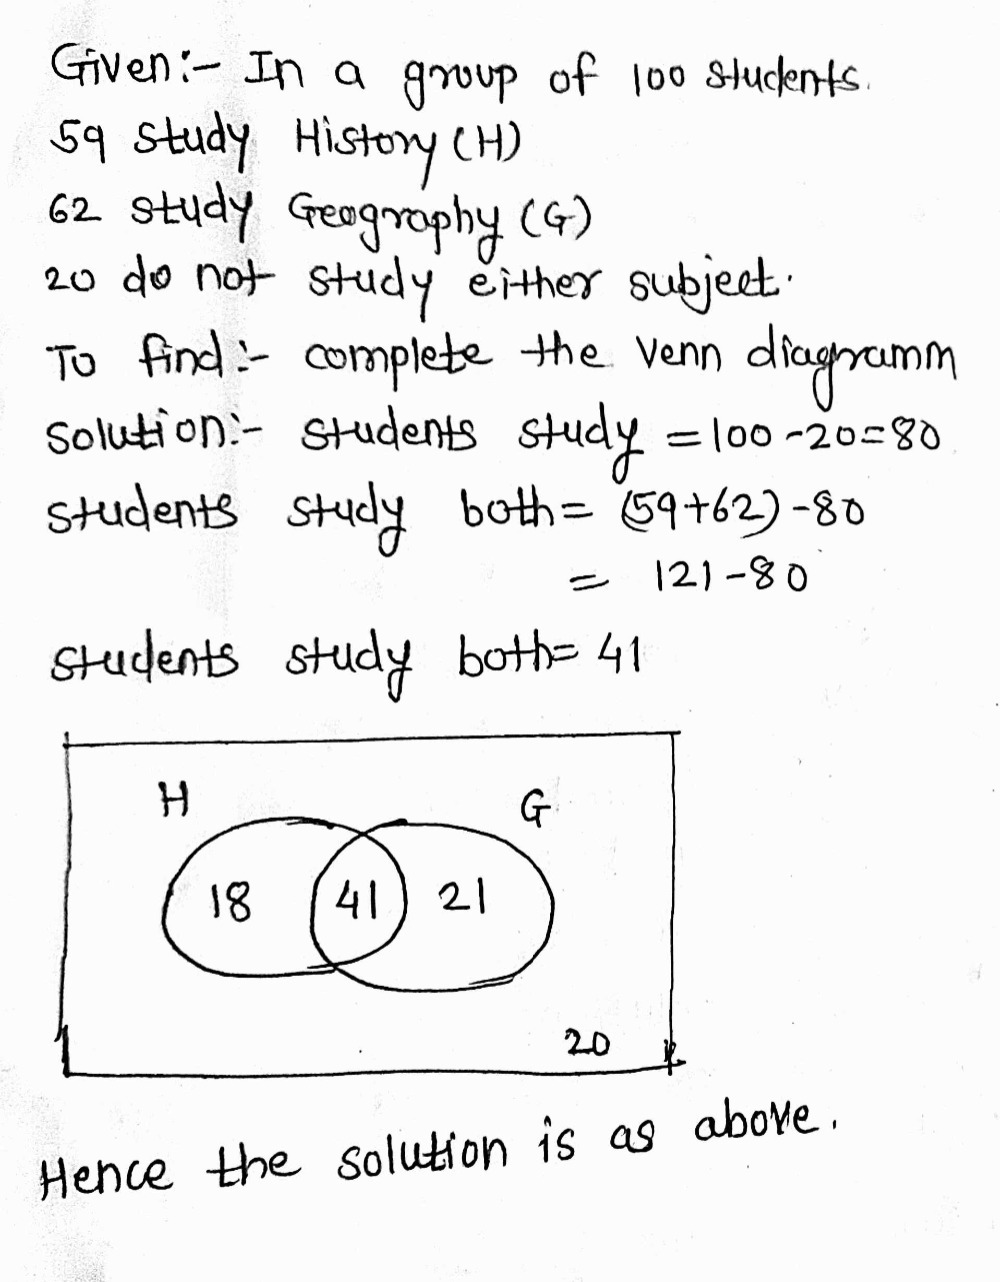 Given:- In a group of 100 students.
59 study History (H)
62 study Geography (G)
20 do not study either subject.
To find:- complete the Venn diagramm
solution:- students study = 100 - 20 = 80
students study both = (59+62) - 80
= 121 - 80
students study both = 41
H G
18 41 21
20
Hence the solution is as above.